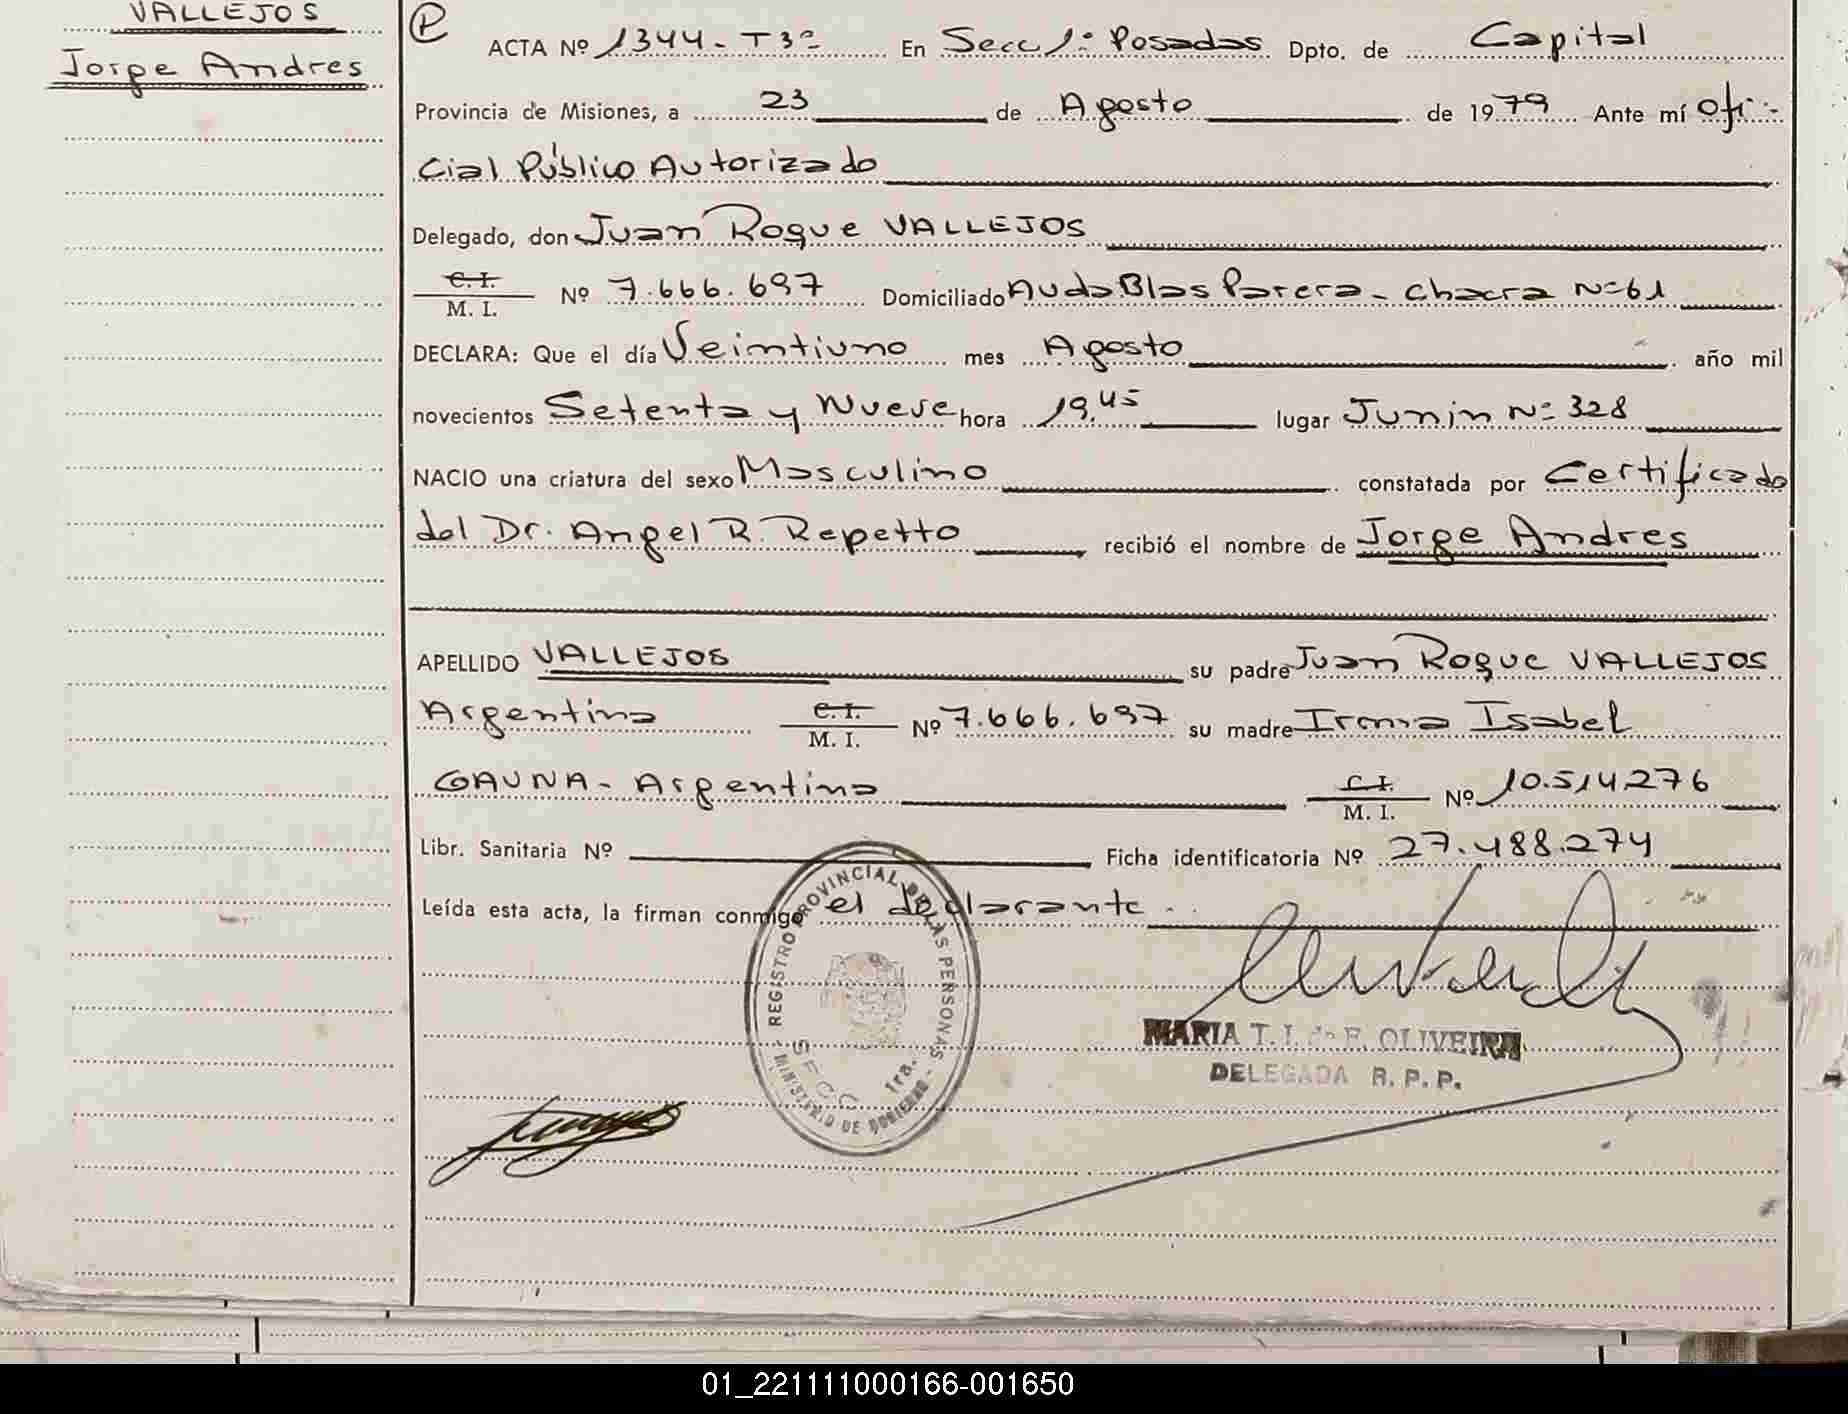 VALLEJOS
Jorge Andres
P
ACTA Nº 1344 - T3º En Secc 1º Posadas Dpto. de Capital
Provincia de Misiones, a 23 de Agosto de 1979 Ante mí Ofi-
cial Público Autorizado
Delegado, don Juan Roque VALLEJOS
C. I.
M. I. Nº 7.666.697 Domiciliado Avda Blas Parera - Chacra Nº 61
DECLARA: Que el día Veintiuno mes Agosto año mil
novecientos Setenta y Nueve hora 19,45 lugar Junin Nº 328
NACIO una criatura del sexo Masculino constatada por Certificado
del Dr. Angel R. Repetto recibió el nombre de Jorge Andres
APELLIDO VALLEJOS su padre Juan Roque VALLEJOS
Argentino C. I. M. I. Nº 7.666.697 su madre Irma Isabel
GAUNA - Argentina C. I. M. I. Nº 10.514.276
Libr. Sanitaria Nº Ficha identificatoria Nº 27.488.274
Leída esta acta, la firman conmigo el declarante.
REGISTRO PROVINCIAL DE LAS PERSONAS
SECC 1ra.
MINISTERIO DE GOBIERNO
MARIA T. I. de F. OLIVEIRA
DELEGADA R. P. P.
01_221111000166-001650